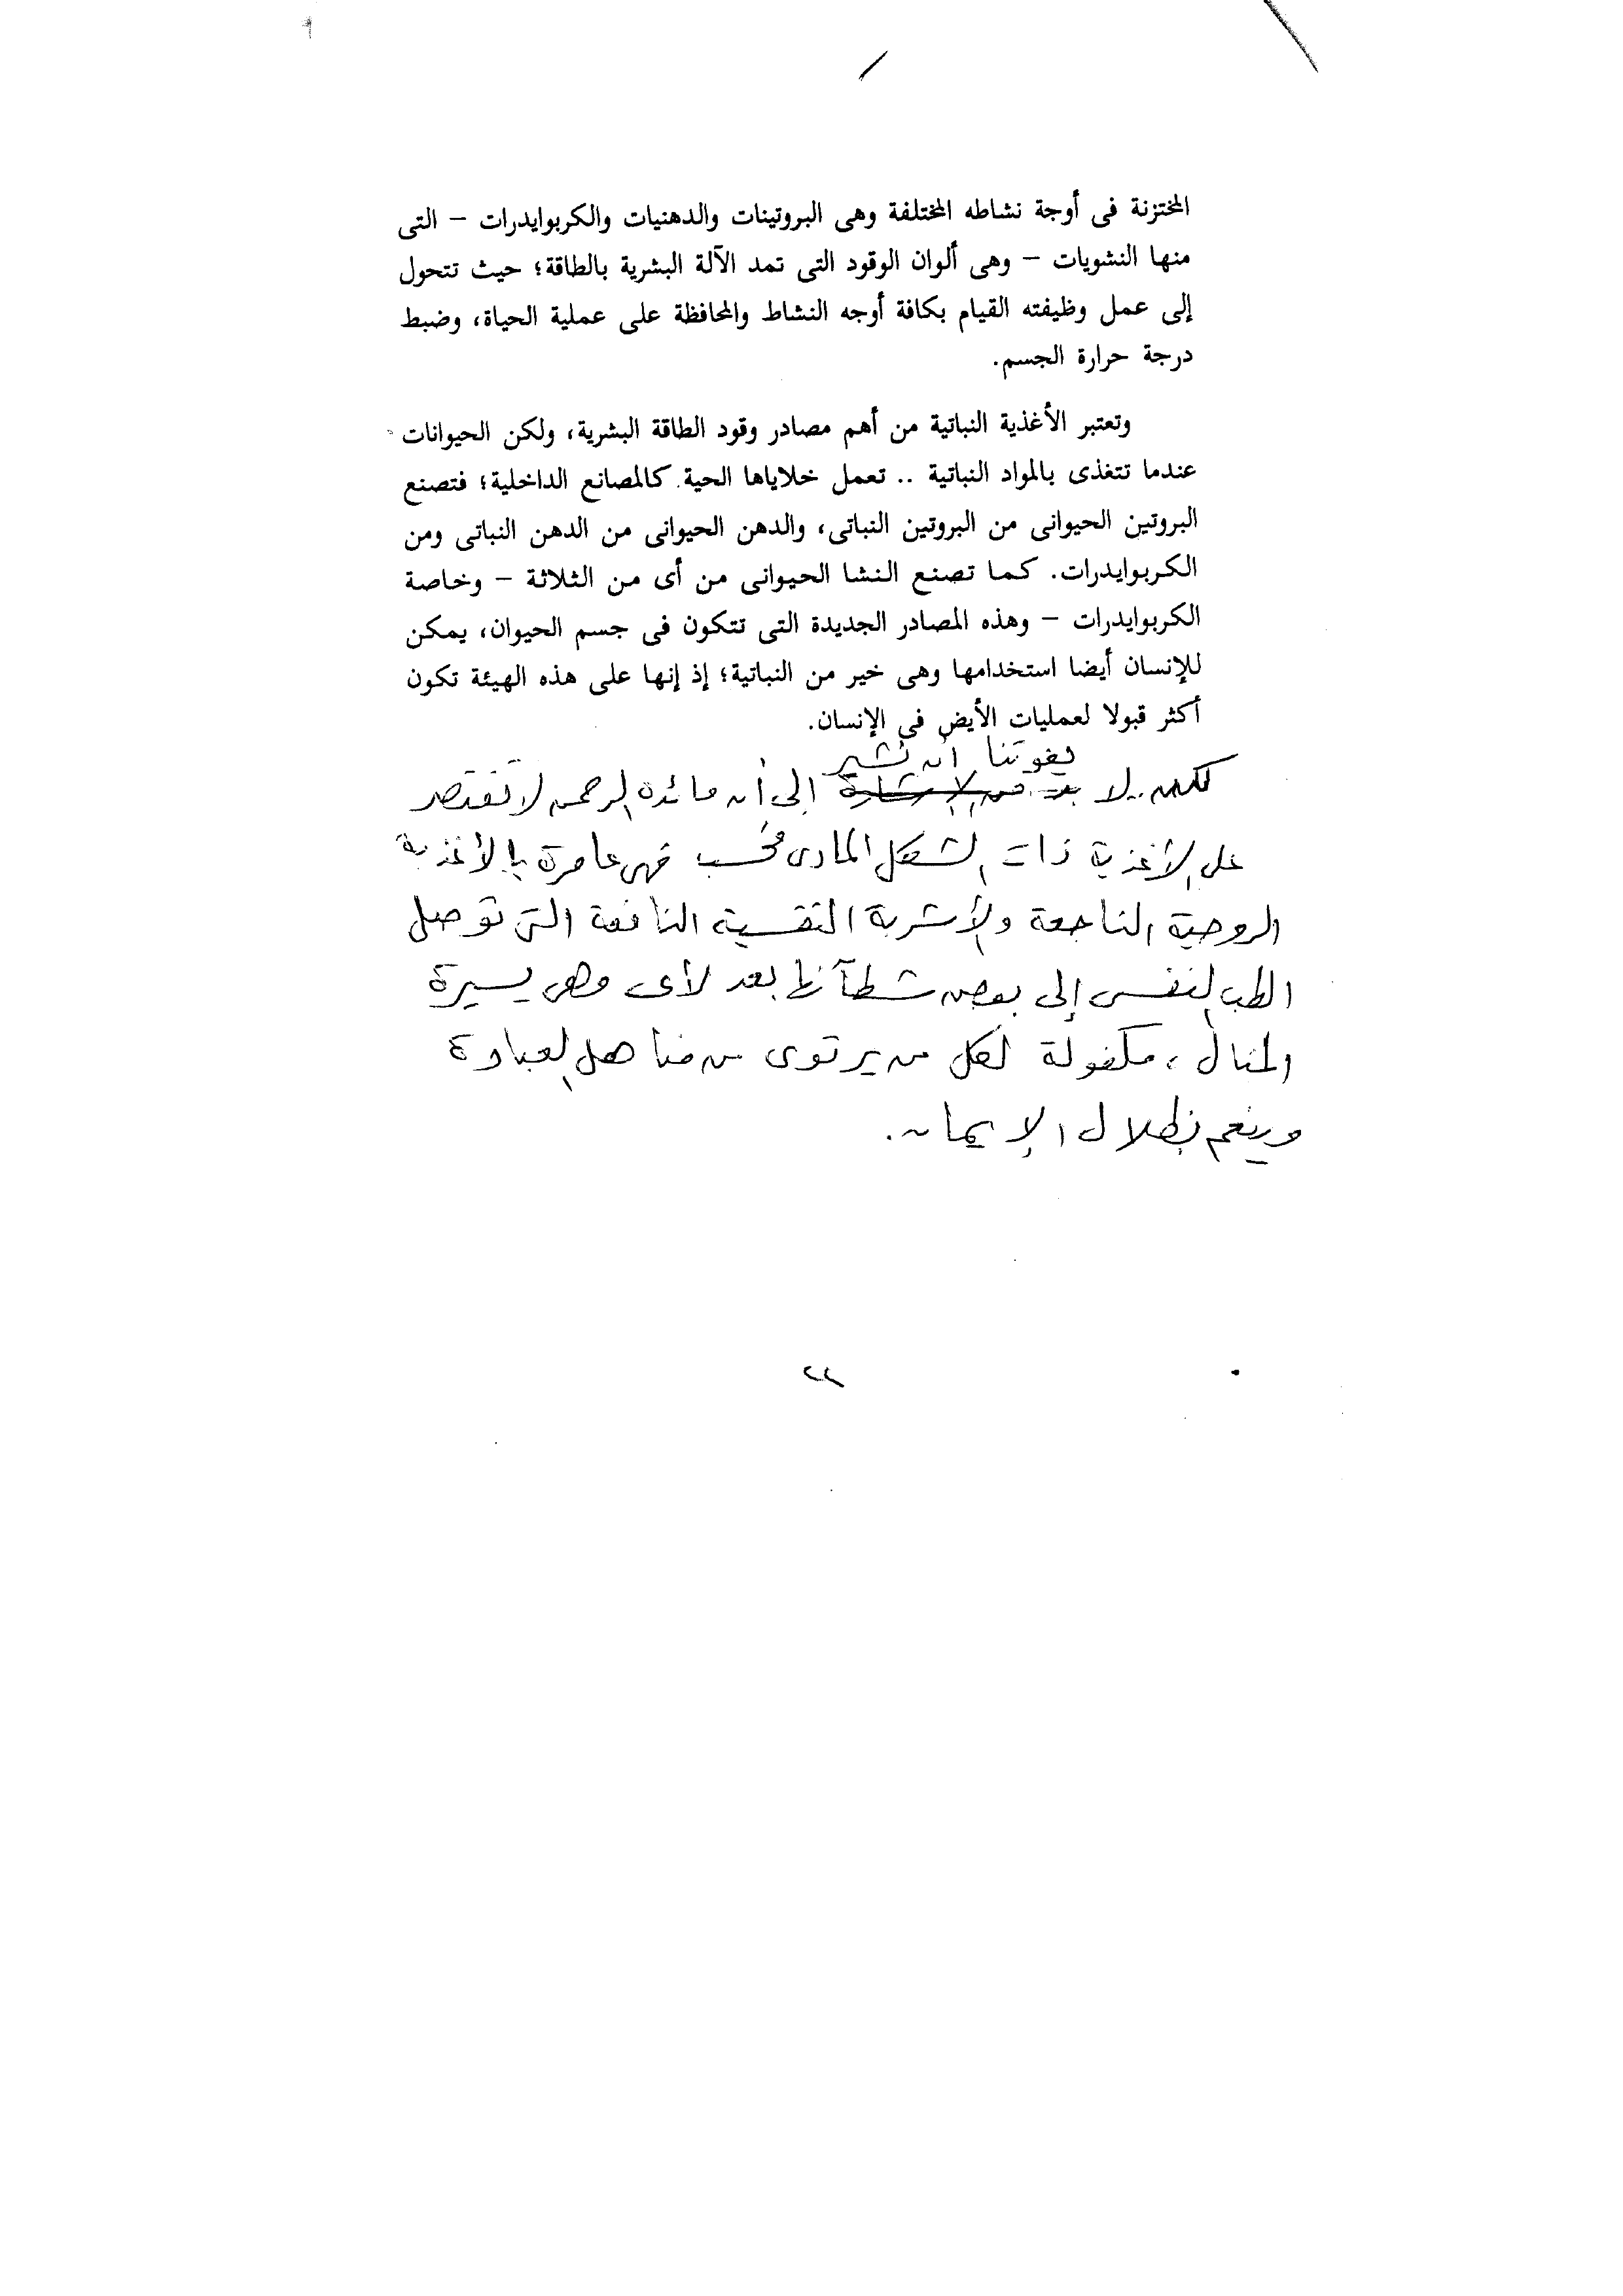 المختزنة فى أوجة نشاطه المختلفة وهى البروتينات والدهنيات والكربوايدرات – التى
منها النشويات – وهى ألوان الوقود التى تمد الآلة البشرية بالطاقة؛ حيث تتحول
إلى عمل وظيفته القيام بكافة أوجه النشاط والمحافظة على عملية الحياة، وضبط
درجة حرارة الجسم.
وتعتبر الأغذية النباتية من أهم مصادر وقود الطاقة البشرية، ولكن الحيوانات
عندما تتغذى بالمواد النباتية .. تعمل خلاياها الحية كالمصانع الداخلية؛ فتصنع
البروتين الحيوانى من البروتين النباتى، والدهن الحيوانى من الدهن النباتى ومن
الكربوايدرات. كما تصنع النشا الحيوانى من أى من الثلاثة – وخاصة
الكربوايدرات – وهذه المصادر الجديدة التى تتكون فى جسم الحيوان، يمكن
للإنسان أيضا استخدامها وهى خير من النباتية؛ إذ إنها على هذه الهيئة تكون
أكثر قبولا لعمليات الأيض فى الإنسان.
يفوتنا أن نشير
لكن لا بد من الإشارة إلى أن مائدة الرحمن لا تقتصر
على الأغذية ذات الشكل المادى فحسب فهى عامرة بالأغذية
الروحية الناجعة والأشربة النفسية النافعة التى توصل
الطب النفسى إلى بعض شطآنها بعد لأى وهى يسيرة
المنال، مكفولة لكل من يرتوى من مناهل العبادة
وينعم بظلال الإيمان.
٢٢